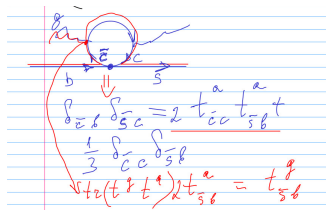 g
c̄ c
b s̄
δ_{c̄b} δ_{s̄c} = 2 t^a_{c̄c} t^a_{s̄b} +
1/3 δ_{c̄c} δ_{s̄b}
tr(t^g t^a) 2 t^a_{s̄b} = t^g_{s̄b}